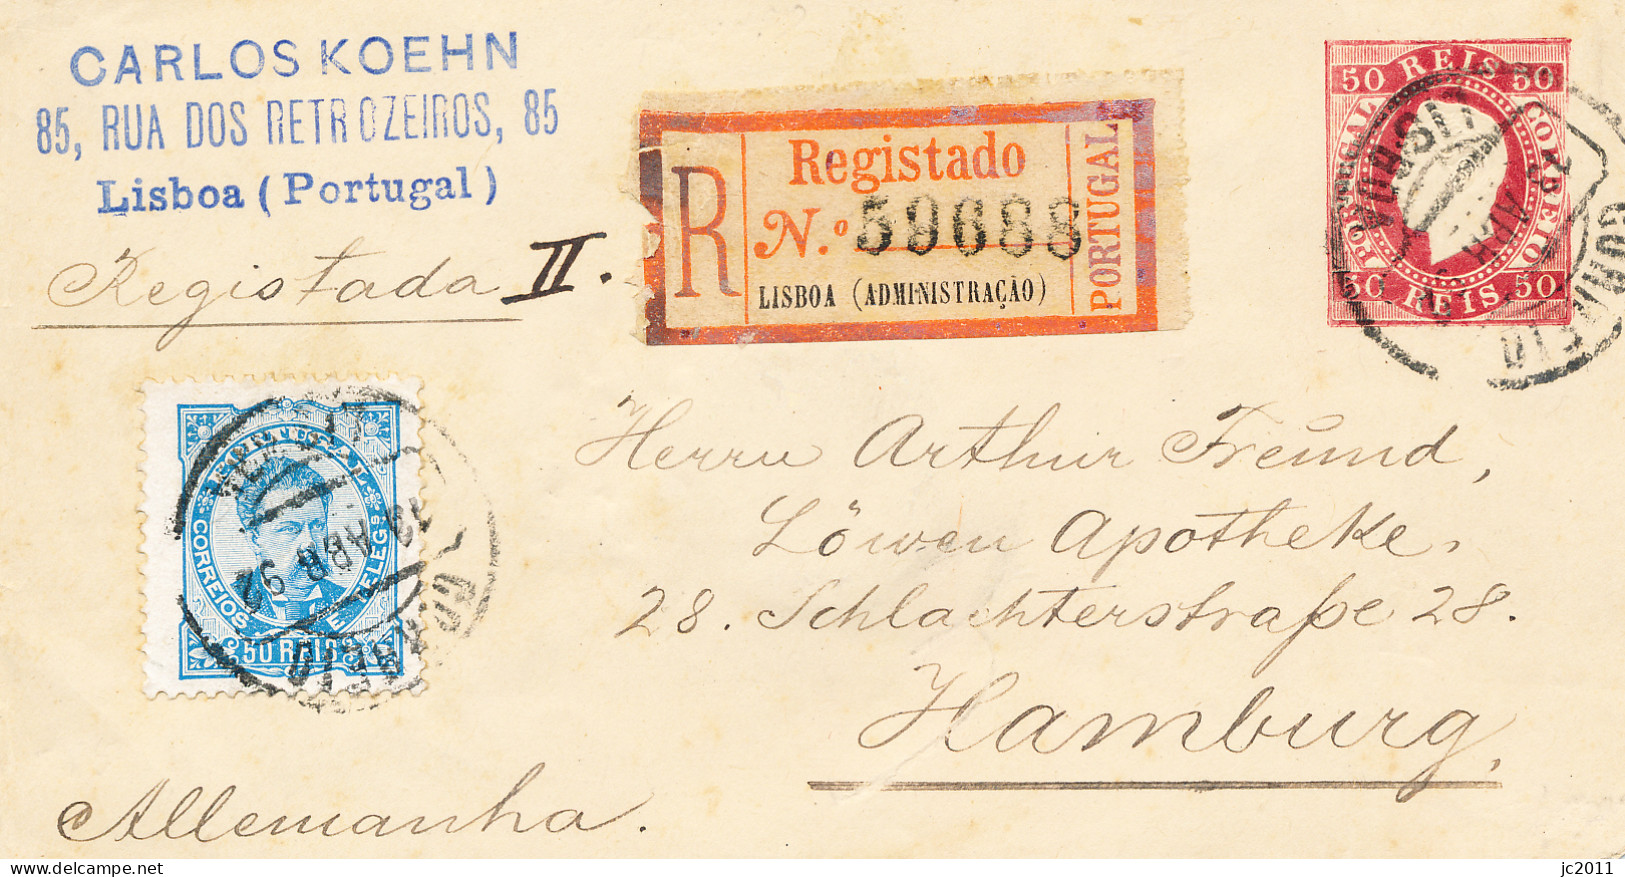 CARLOS KOEHN
85, RUA DOS RETROZEIROS, 85
Lisboa (Portugal)
Registada II.
R
Registado
N.º 59688
LISBOA (ADMINISTRAÇÃO)
PORTUGAL
50 REIS 50
PORTUGAL
CORREIO
50 REIS 50
CORREIO
PORTUGAL
CORREIOS E TELEGS
50 REIS
13 ABR 92
CORREIO
Herrn Arthur Freund,
Löwen Apotheke.
28. Schlachterstraße 28.
Hamburg,
Allemanha.
delcampe.net
jc2011